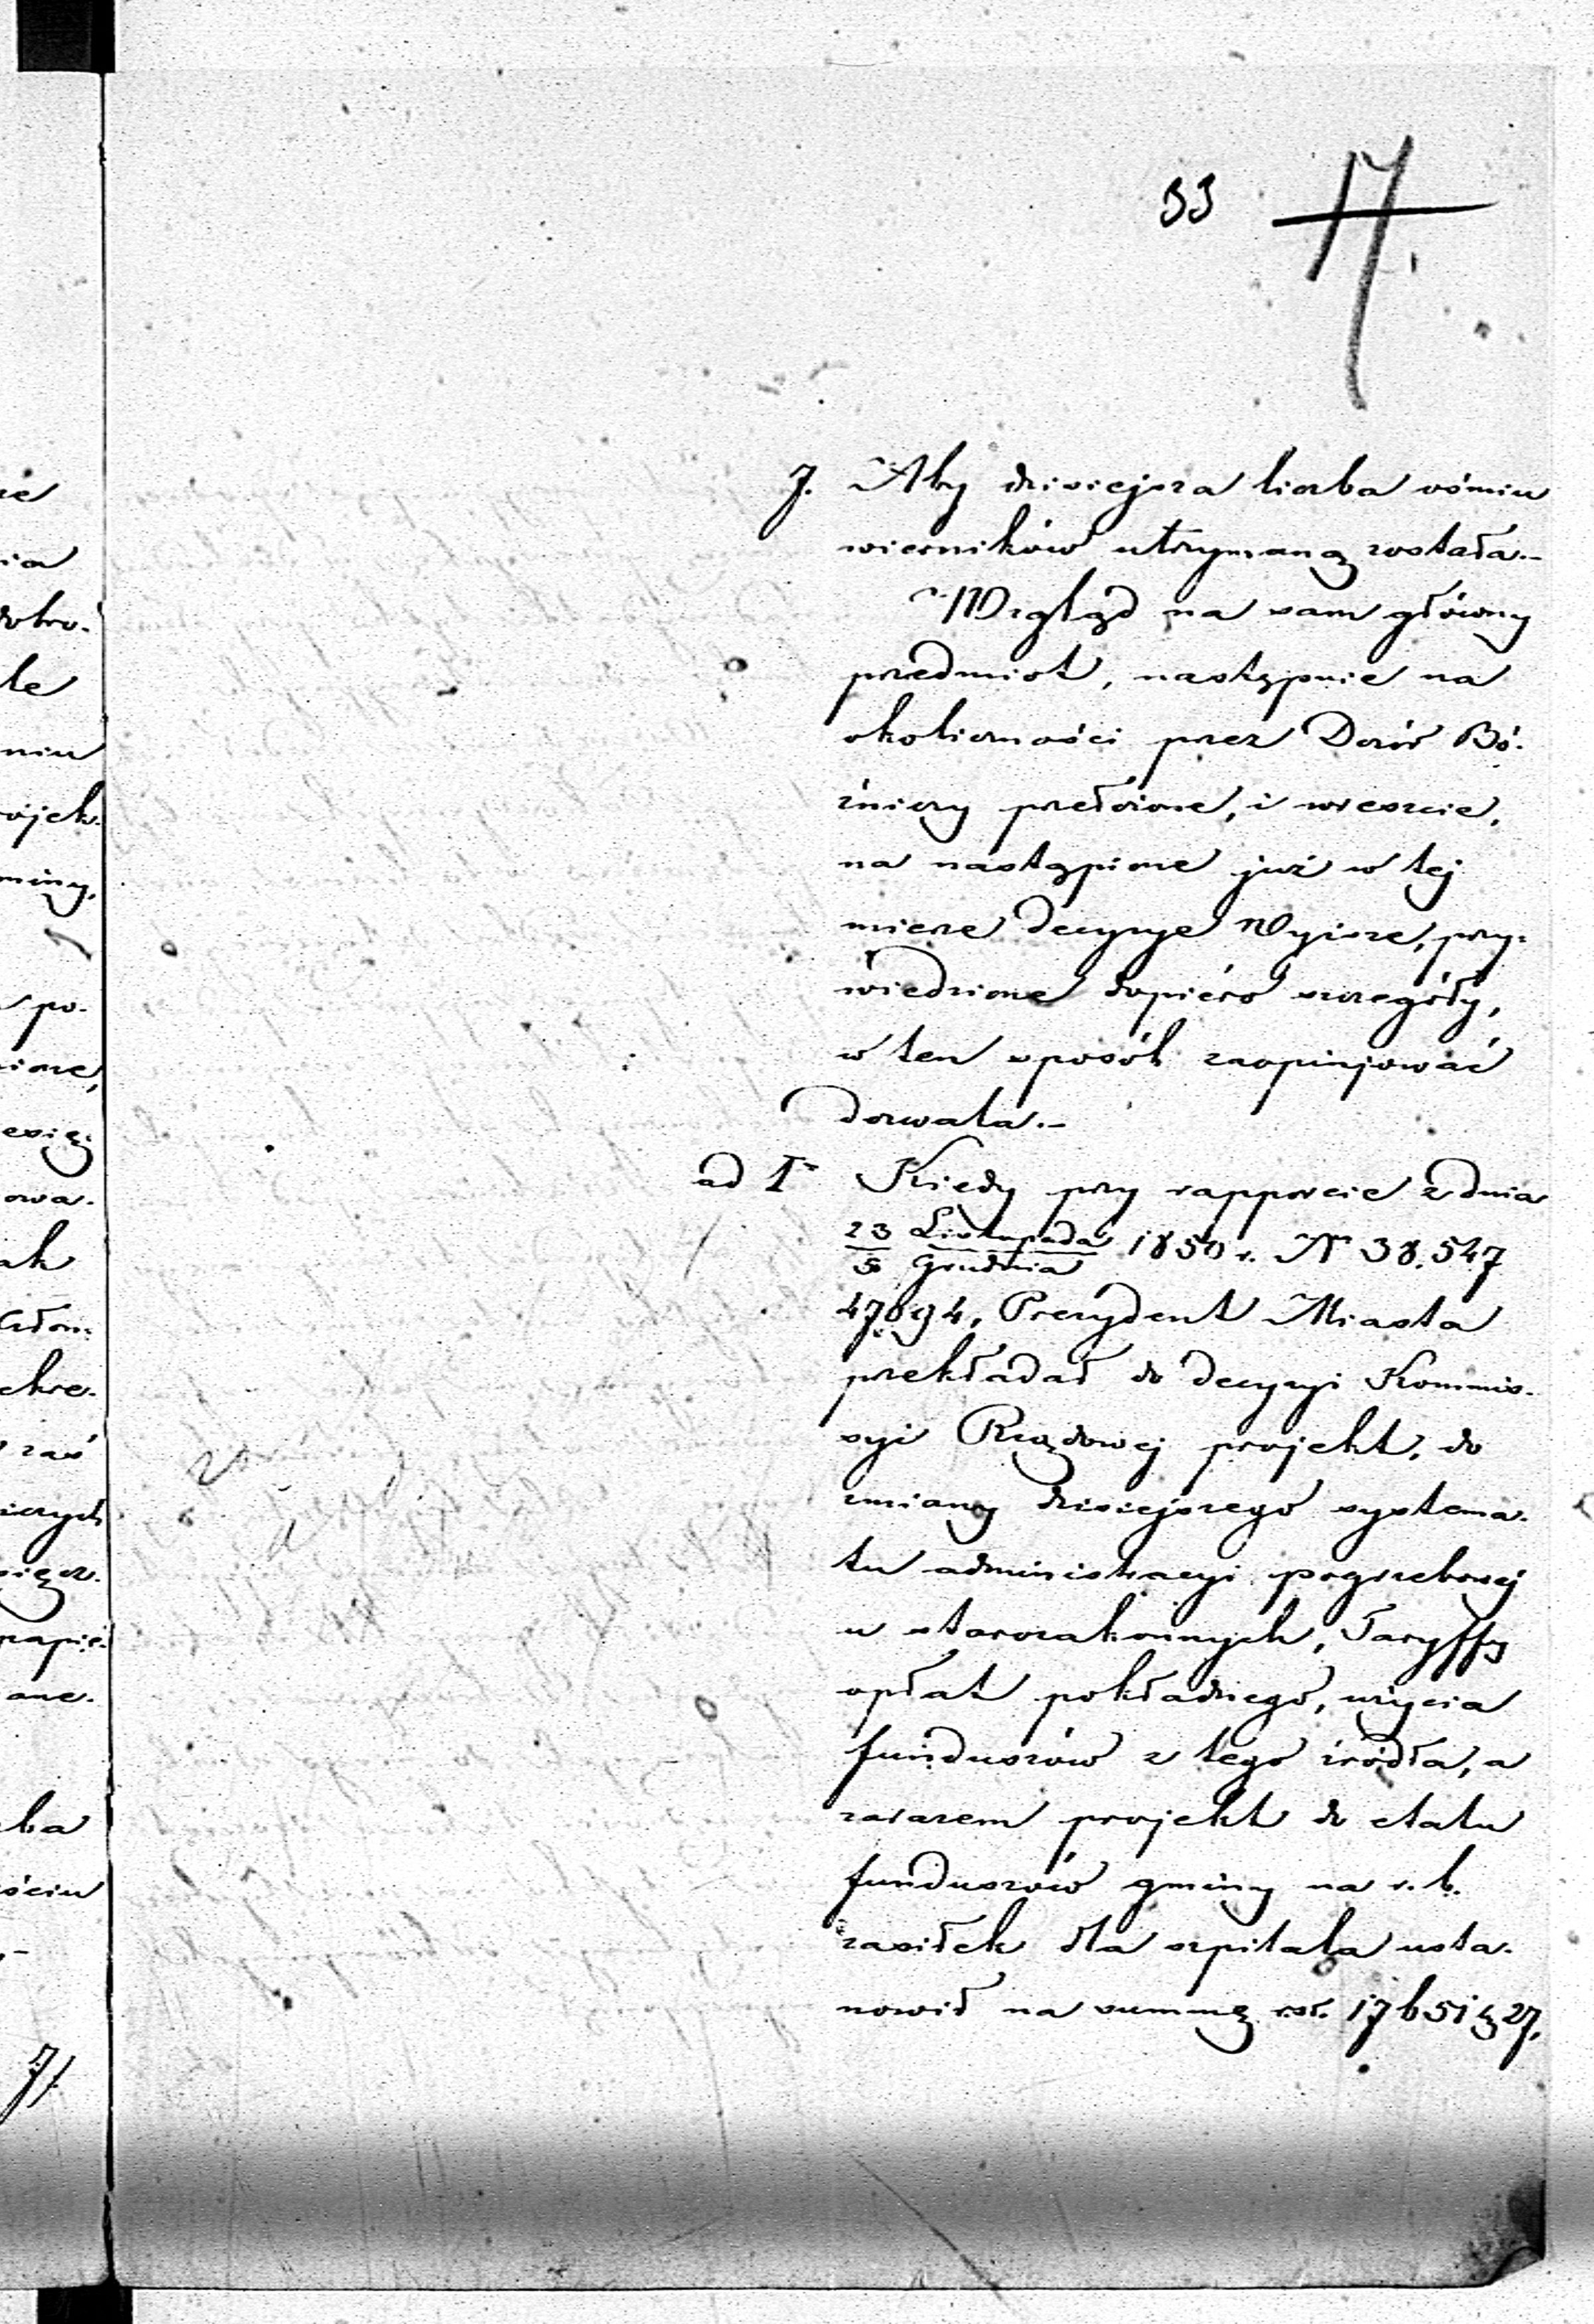 33 17.
7. Aby dzisiejsza liczba ośmiu
wierników utrzymaną została.-
Wzgląd na sam główny
przedmiot, następnie na
okoliczności przez Dozór Bó-
źniczy przełożone, i wreszcie,
na nastąpione już w tej
mierze decyzye Wyższe, przy-
wiedzione dopiéro szczegóły,
w ten sposób zaopinjować
dozwala.-
ad 1° Kiedy przy rapporcie z dnia
23 Listopada
5 Grudnia 1850 r. N 38.547
47094, Prezydent Miasta
przekładał do decyzyi Kommis-
syi Rządowej projekt, do
zmiany dzisiejszego systema-
tu administracyi pogrzebowej
u starozakonnych, Taryffy
opłat pokładnego, użycia
funduszów z tego źródła, a
zarazem projekt do etatu
funduszów gminy na r. b.
zasiłek dla szpitala usta-
nowił na summę rsr. 17651 27,
re
nia
dobro-
le
niu
rojek-
miny,
po-
ione,
esię-
owa-
ak
człon-
ekre-
zaś
papie-
one.
ba
ościu
7/.